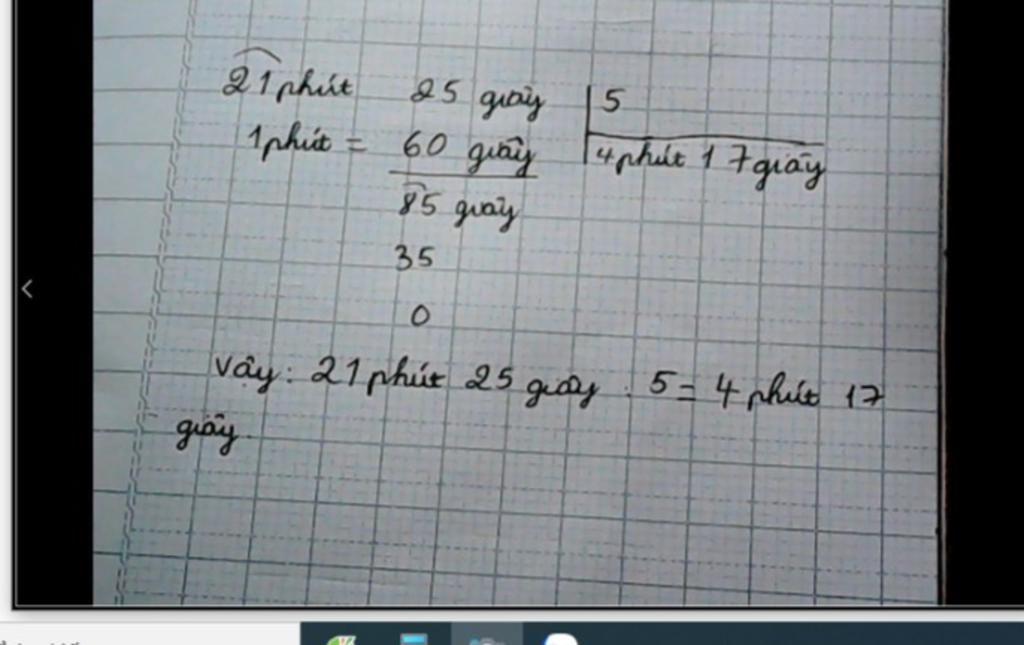 21 phút 25 giây 5
1 phút = 60 giây 4 phút 17 giây
85 giây
35
0
Vậy: 21 phút 25 giây : 5 = 4 phút 17
giây.